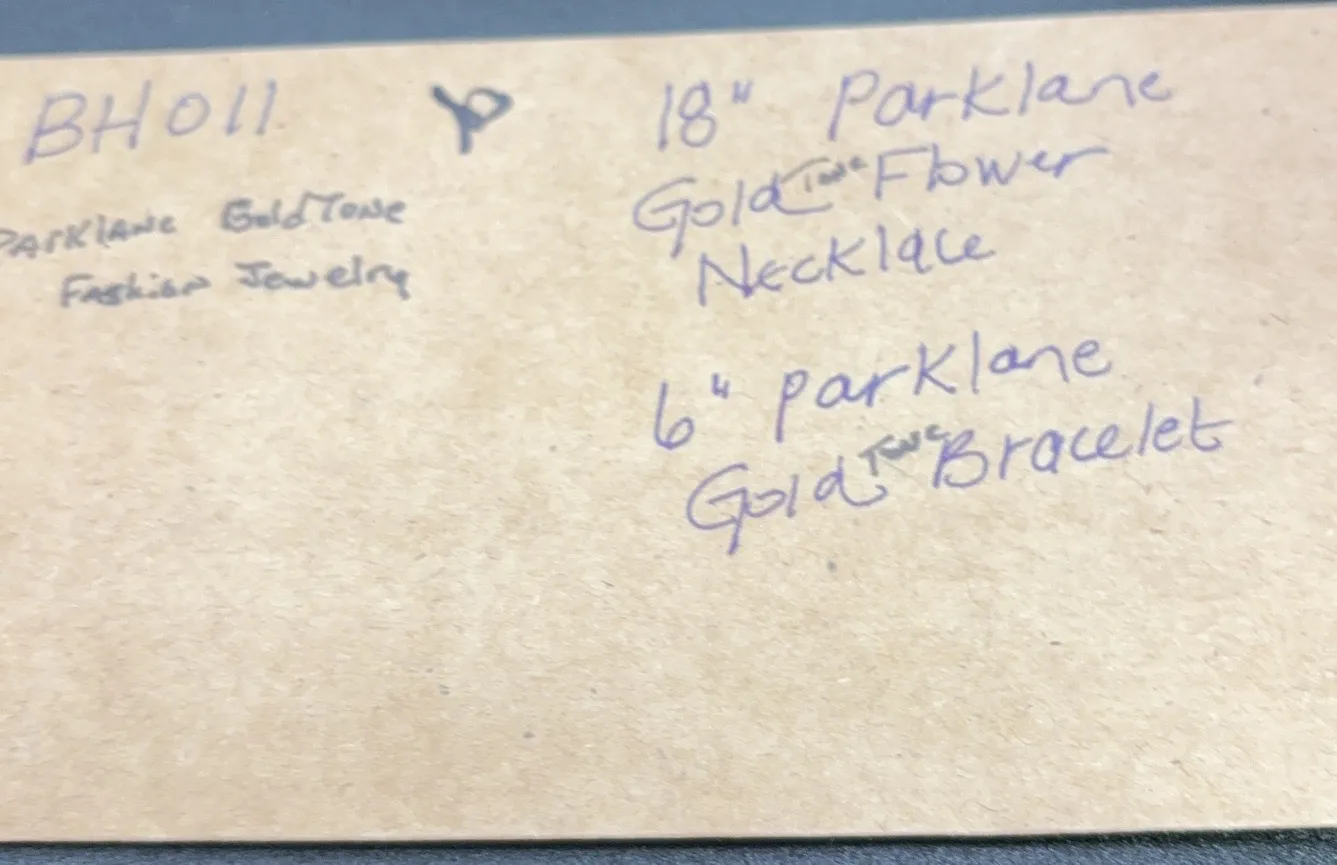 BH011
Parklane Gold Tone
Fashion Jewelry
18" Parklane
Gold Tone Flower
Necklace
6" parklane
Gold Tone Bracelet